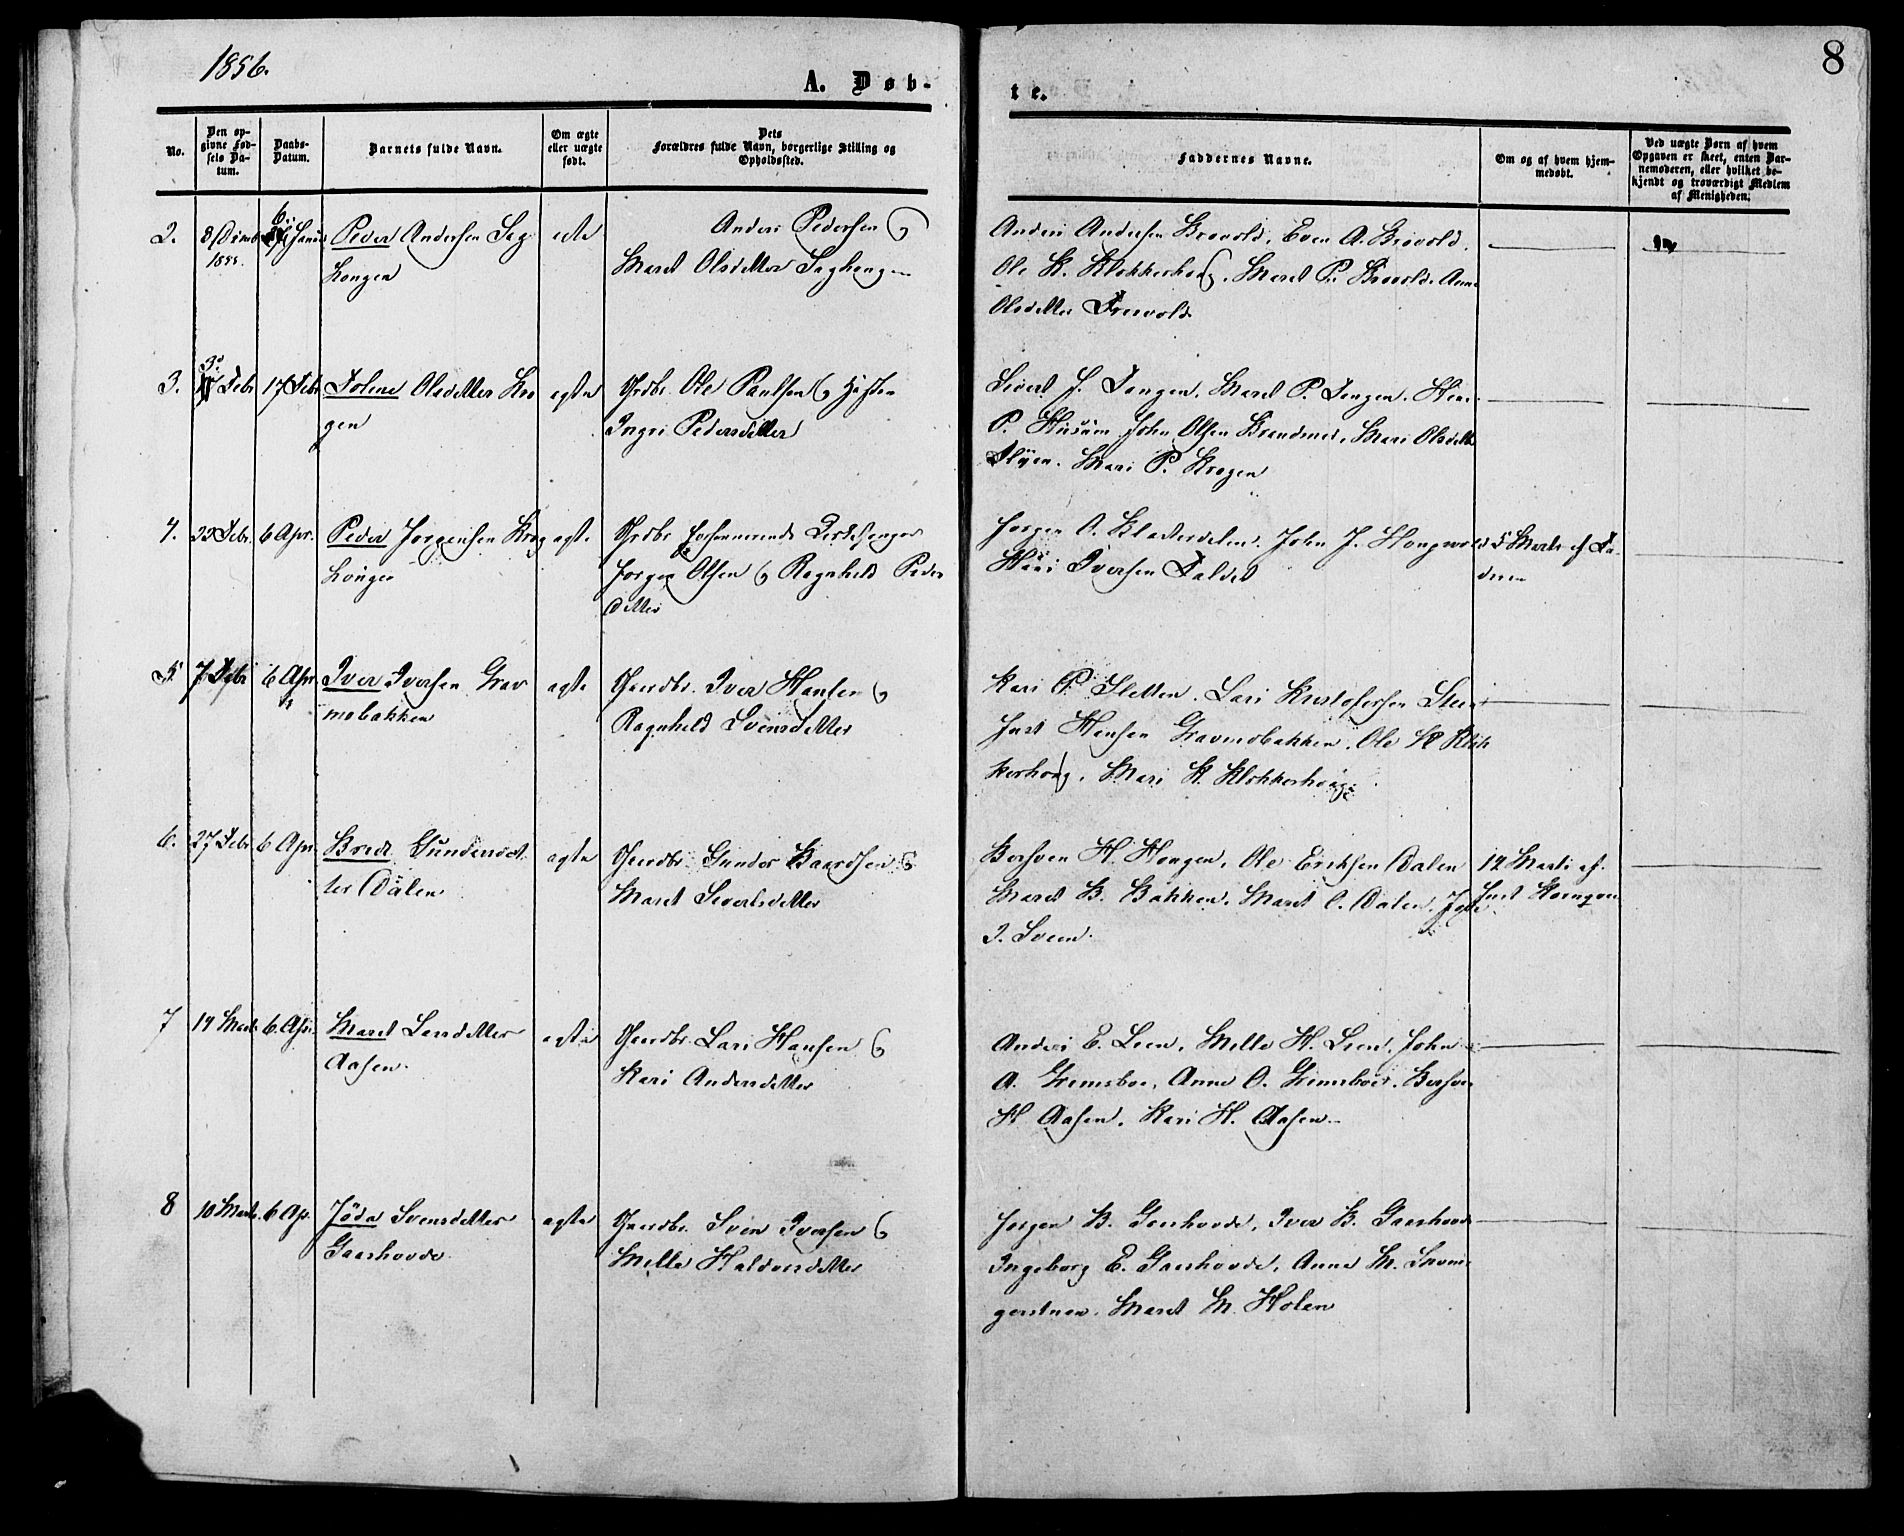 1856.
8
A. Døb-
te.
No.
Den op-
givne Fød-
sels Da-
tum.
Daabs-
Datum.
Barnets fulde Navn.
Om ægte
eller uægte
født.
Dets
Forældres fulde Navn, borgerlige Stilling og
Opholdssted.
Faddernes Navne.
Om og af hvem hjem-
medøbt.
Ved uægte Børn af hvem
Opgaven er skeet, enten Bar-
nemoderen, eller hvilket be-
kjendt og troværdigt Medlem
af Menigheden.
2.
8
1855.
6
Peder Andersen Sag
ægte
Anders Pedersen og
Maret Olsdatter
Anders Andersen Brovold, Even A. Brovold,
Ole K. Klokkerhoug, Maret P. Brovold, Anne
Olsdatter
3.
3
Febr
17 Febr
Olsdatter Kro
gen
ægte
Grdbr. Ole Paulsen og
Ingri Pedersdatter
Sivert J. Tangen, Maret P. Tangen,
P. Husum, John Olsen, Mari Olsdatt
Mari P. Krogen
4.
23 Febr.
6 Apr.
Peder Jørgensen Krog
ægte
Grdbr. Kirkesanger
Jørgen Olsen og Ragnhild Peders
datter
Jørgen O. John J.
Iversen
5 Marts af Fa-
deren
5.
7 Febr
6 Apr.
Iver Iversen Grav
mobakken
ægte
Gaardbr. Iver Hansen og
Ragnhild Svensdatter
Kari P. Sletten, Lars Kristofersen
Just Hansen Gravmobakken, Ole K Klok
kerhoug, Mari K. Klokkerhoug
6.
27 Febr
6 Apr.
Gundersdat
ter Dalen
ægte
Gaardbr. Gunder Baardsen og
Maret Sivertsdatter
H. Haugen, Ole Eriksen Dalen
Maret B. Bakken, Maret O. Dalen,
I. Sveen.
Marts af
Just
7
14 Marts
6. Apr.
Maret Larsdatter
Aasen.
ægte
Gaardbr. Lars Hansen og
Kari Andersdatter
Anders E. Lien, Mille H. Lien, John
A. Grimsboe, Anne O. Grimsboe,
H Aasen, Kari H. Aasen
8
10 Marts
6 Ap.
Svensdatter
Gaashovde
ægte
Gaardbr. Sven Iversen og
Mille Haldorsdatter
Jørgen B. Gaashovde, Iver B. Gaashovde
Ingeborg E. Gaashovde, Anne M.
Maret M. Holen